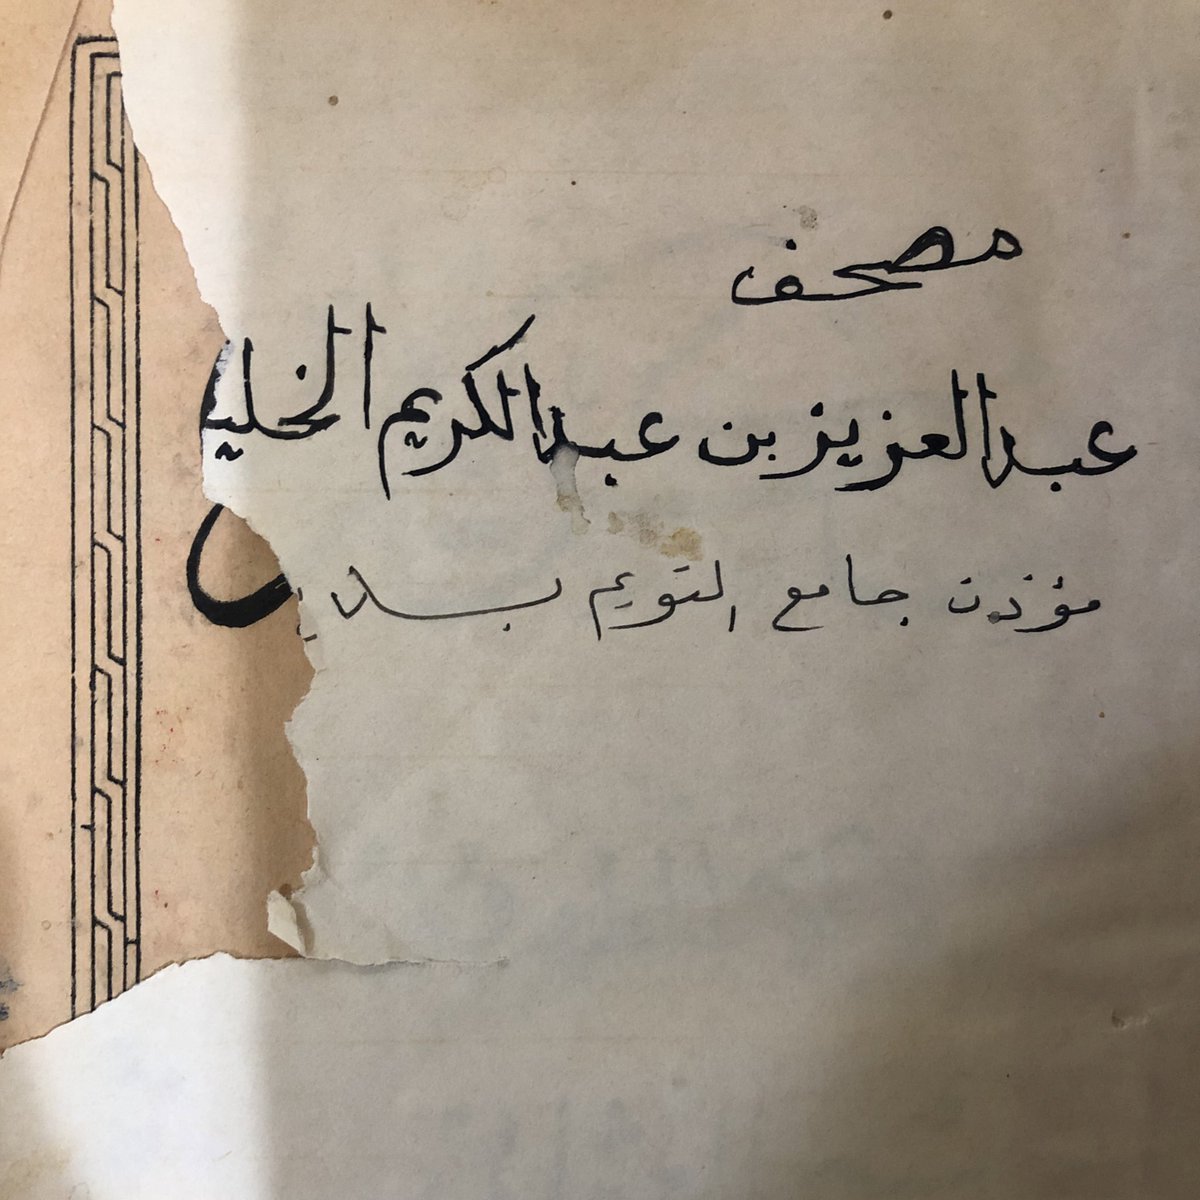 مصحف
عبدالعزيز بن عبدالكريم الخليـ
مؤذن جامع التويم بسدير